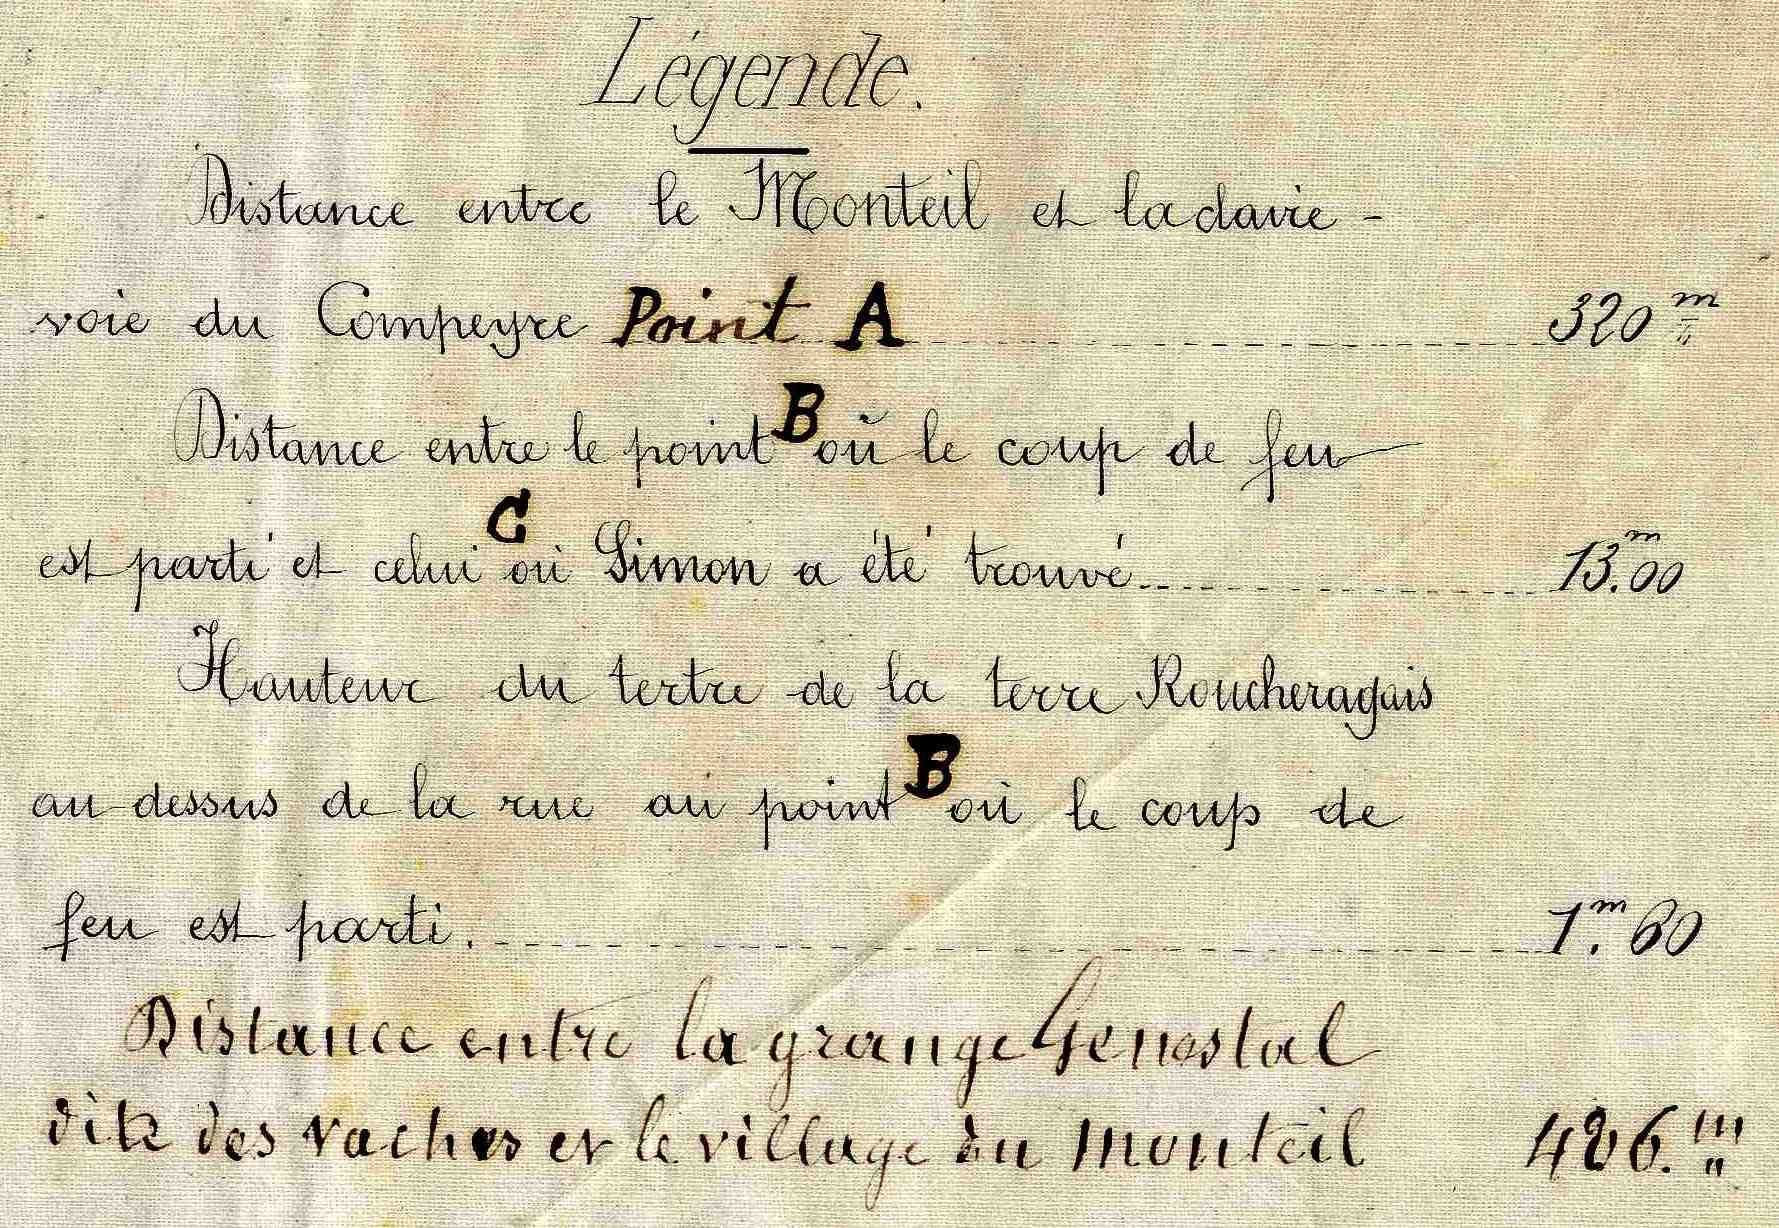 Légende.
Distance entre le Monteil et la davie -
voie du Compeyre Point A 320 m
Distance entre le point B où le coup de feu
est parti et celui C où Simon a été trouvé 13.m00
Hauteur du tertre de la terre Roucheragais
au dessus de la rue au point B où le coup de
feu est parti. 1.m60
Distance entre la grange Genestal
dite des vaches et le village du Monteil 486.m